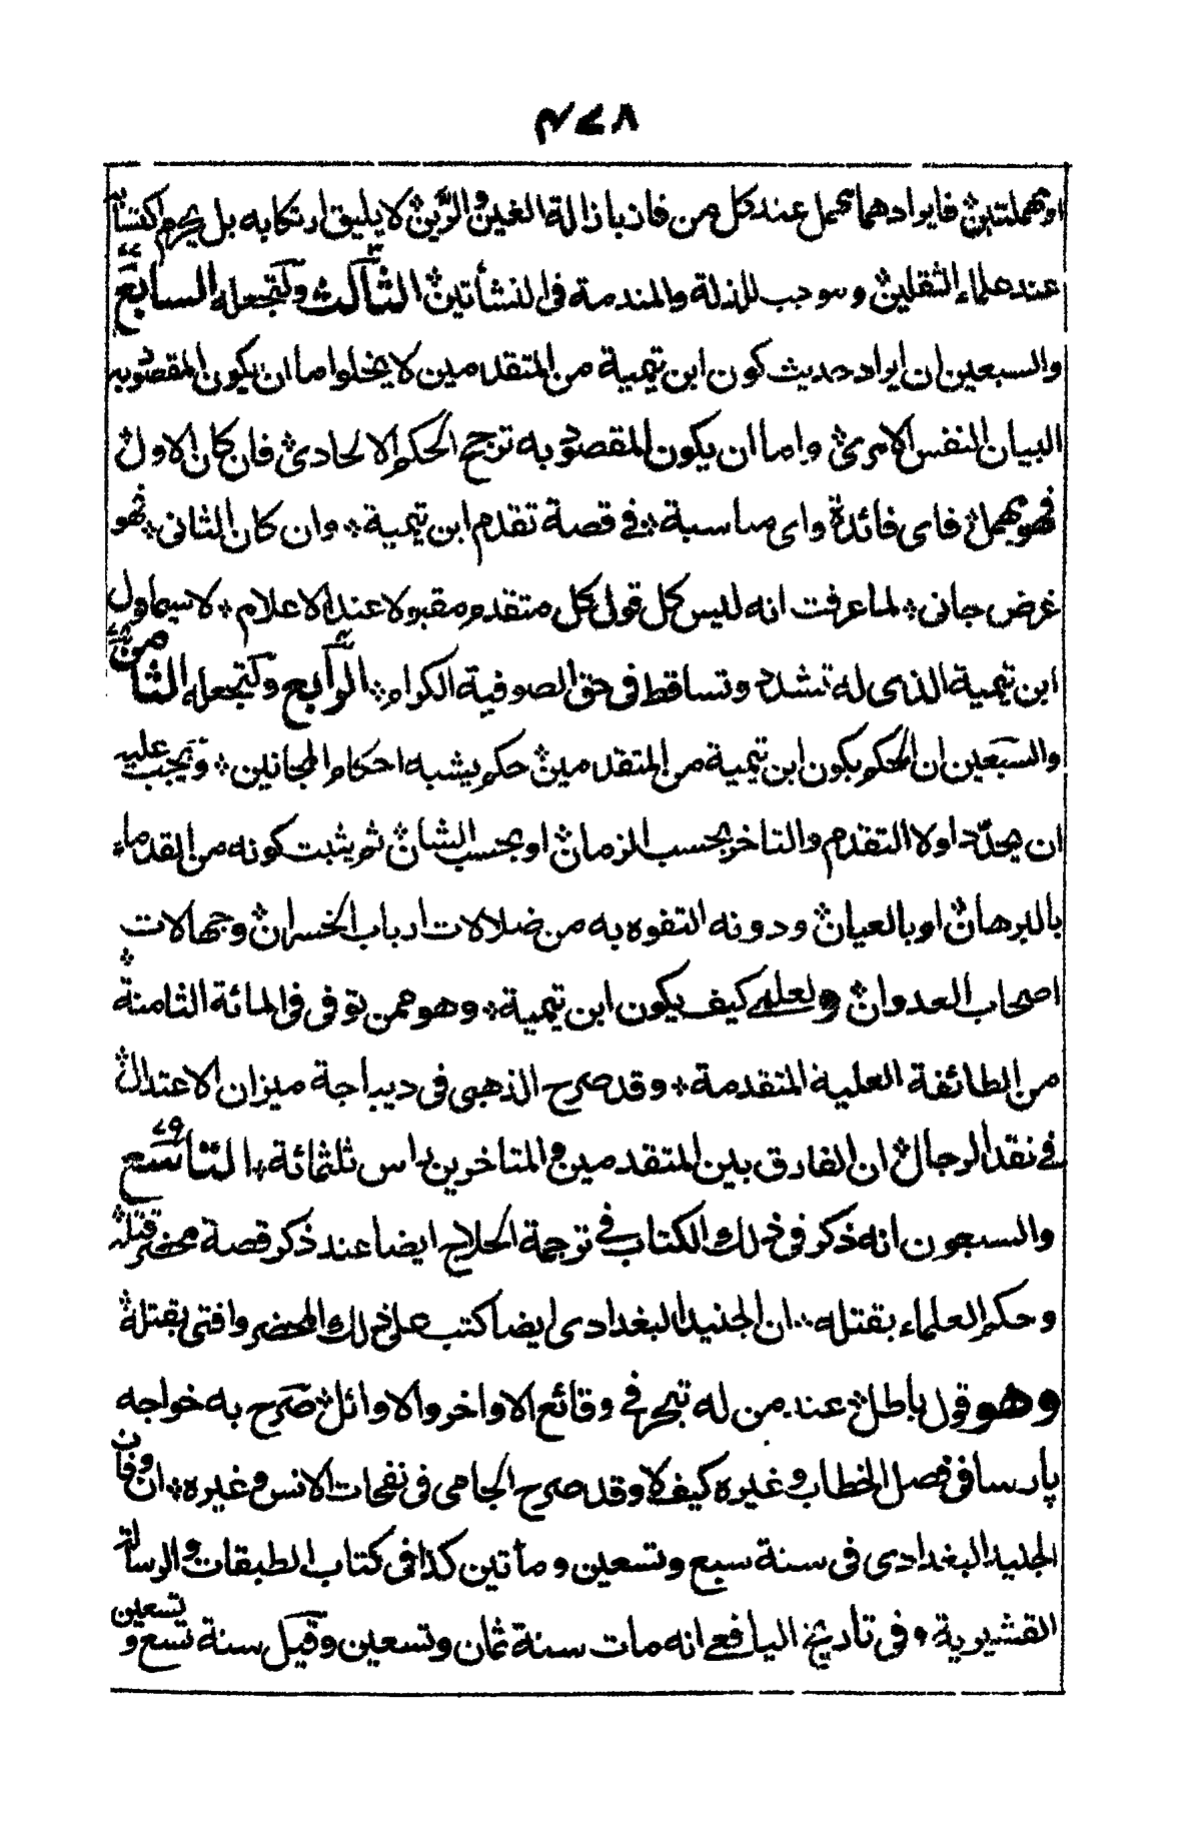 ۴۷۸
او مهملتين فايرادهما مهمل عند كل من فاز بازالة الغين والرين لا يليق ارتكابه بل يحرم اكتسابه
عند علماء الثقلين وموجب للذلة والمندمة فى النشأتين الثالث ولنجعله السابع ۷۷
والسبعين ان ايراد حديث كون ابن تيمية من المتقدمين لا يخلوا ما ان يكون المقصود به
البيان النفس الامرى واما ان يكون المقصود به ترجح الحكم الالحادى فان كان الاول
فهو مهمل فاى فائدة واى مناسبة في قصة تقدم ابن تيمية وان كان الثانى فهو
غرض جانى لما عرفت انه ليس كل قول كل متقدم مقبولا عند الاعلام لا سيما قول
ابن تيمية الذى له تشدد وتساقط فى حق الصوفية الكرام الرابع ولنجعله الثامن ۷۸
والسبعين ان الحكم بكون ابن تيمية من المتقدمين حكم يشبه احكام المجانين ويجب عليه
ان يحدد اولا التقدم والتاخر بحسب الزمان او بحسب الشان ثم يثبت كونه من القدماء
بالبرهان او بالعيان ودونه التفوه به من ضلالات ارباب الخسران وجهالات
اصحاب العدوان ولعلى كيف يكون ابن تيمية وهو ممن توفى فى المائة الثامنة
من الطائفة العلية المتقدمة وقد صرح الذهبى فى ديباجة ميزان الاعتدال
في نقد الرجال ان الفارق بين المتقدمين والمتاخرين راس ثلثمائة التاسع ۷۹
والسبعون انه ذكر فى ذلك الكتاب في ترجمة الحلاج ايضا عند ذكر قصة محضر قتله
وحكم العلماء بقتله ان الجنيد البغدادى ايضا كتب على ذلك المحضر وافتى بقتله
وهو قول باطل عند من له تبحر في وقائع الاواخر والاوائل صرح به خواجه
پارسا فى فصل الخطاب وغيره كيف لا وقد صرح الجامى فى نفحات الانس وغيره ان وفات
الجنيد البغدادى فى سنة سبع وتسعين ومأتين كذا فى كتاب الطبقات والرسالة
القشيرية وفى تاريخ اليافعى انه مات سنة ثمان وتسعين وقيل سنة تسع وتسعين